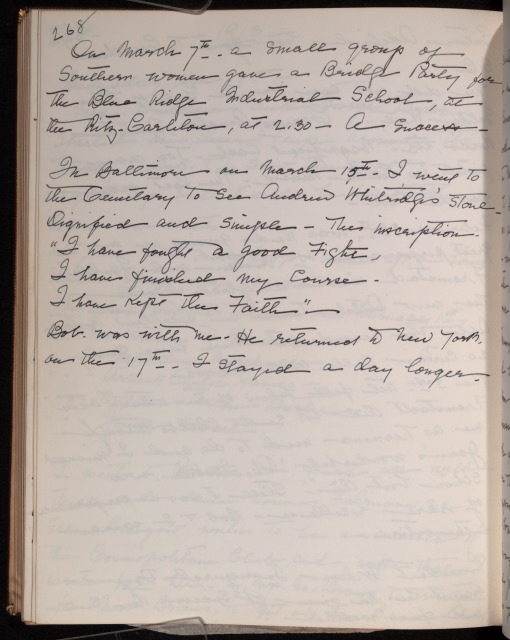 268
On March 7th - a small group of
Southern women gave a Bridge Party for
the Blue Ridge Industrial School, at
the Ritz-Carlton, at 2.30 - A Success -
In Baltimore on March 15th - I went to
the Cemetary to see Andrew Whitridge's Stone -
Dignified and simple - This inscription.
"I have fought a good Fight,
I have finished my Course.
I have kept the Faith" -
Bob. was with me - He returned to New York.
on the 17th - I stayed a day longer.